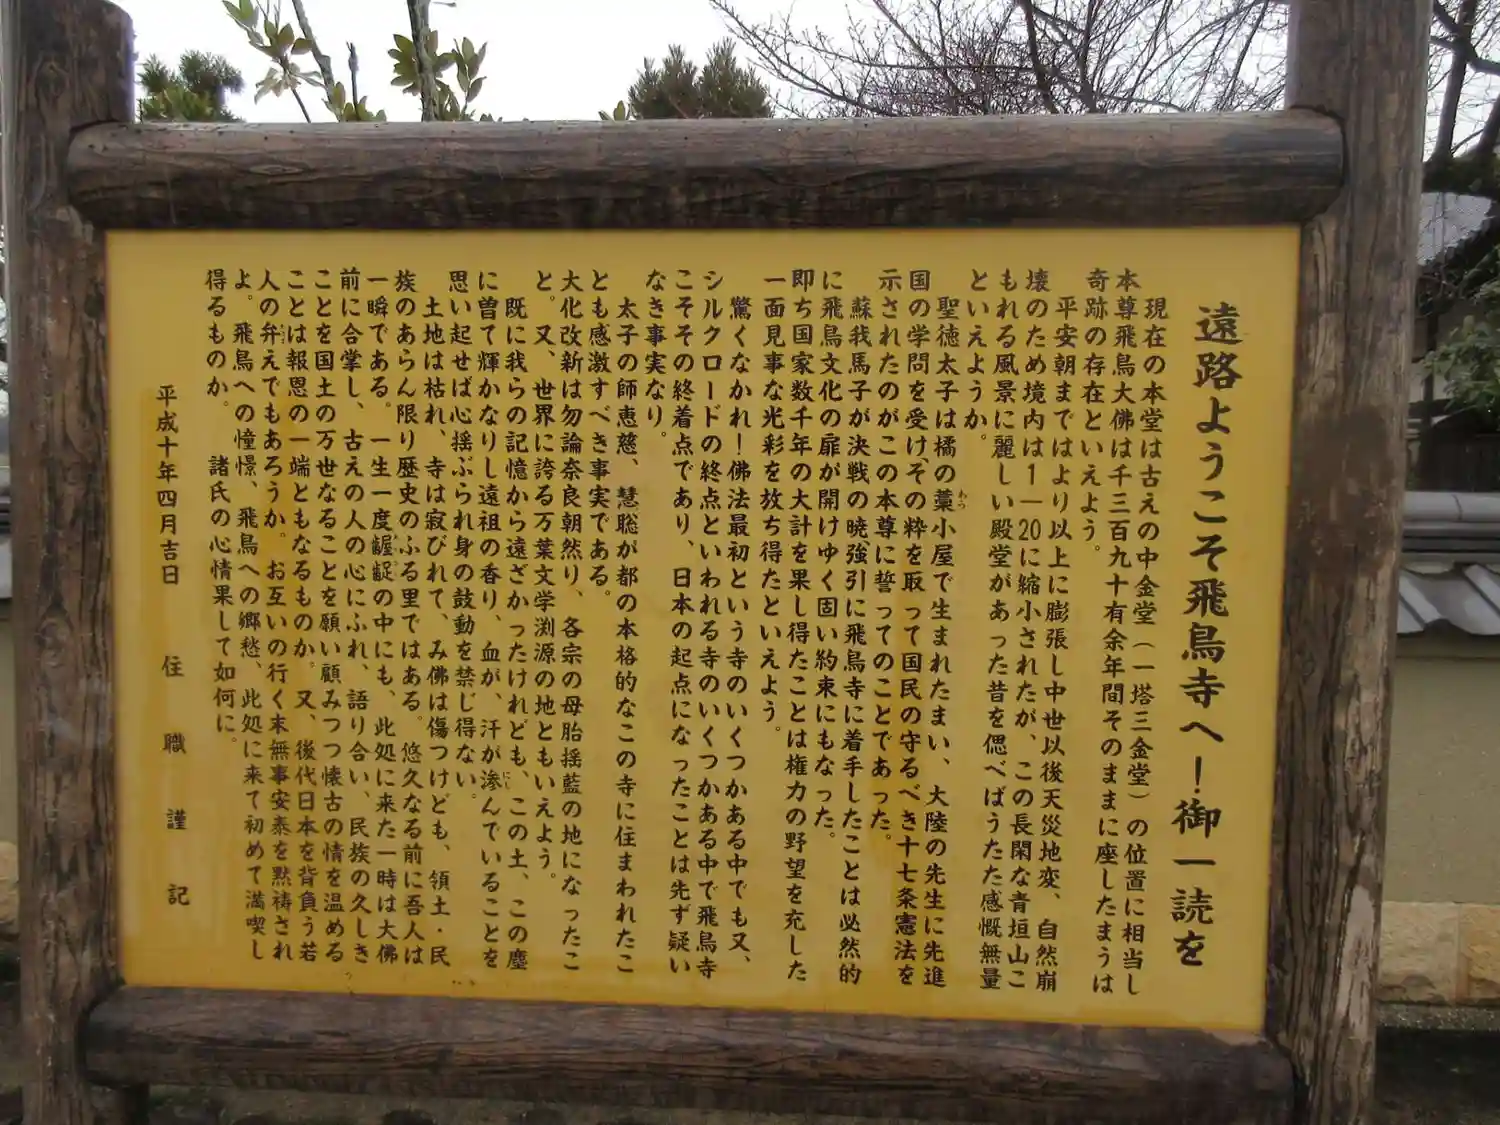 遠路ようこそ飛鳥寺へ！御一読を
現在の本堂は古えの中金堂（一塔三金堂）の位置に相当し
本尊飛鳥大佛は千三百九十有余年間そのままに座したまうは
奇跡の存在といえよう。
平安朝まではより以上に膨張し中世以後天災地変、自然崩
壊のため境内は1―20に縮小されたが、この長閑な青垣山こ
もれる風景に麗しい殿堂があった昔を偲べばうたた感慨無量
といえようか。
聖徳太子は橘の藁小屋で生まれたまい、大陸の先生に先進
国の学問を受け、その粋を取って国民の守るべき十七条憲法を
示されたのがこの本尊に誓ってのことであった。
蘇我馬子が決戦の暁強引に飛鳥寺に着手したことは必然的
に飛鳥文化の扉が開けゆく固い約束にもなった。
即ち国家数千年の大計を果し得たことは権力の野望を充した
一面見事な光彩を放ち得たといえよう。
驚くなかれ！佛法最初という寺のいくつかある中でも又、
シルクロードの終点といわれる寺のいくつかある中で飛鳥寺
こそその終着点であり、日本の起点になったことは先ず疑い
なき事実なり。
太子の師恵慈、慧聡が都の本格的なこの寺に住まわれたこ
とも感激すべき事実である。
大化改新は勿論奈良朝然り、各宗の母胎揺藍の地になったこ
と。又、世界に誇る万葉文学渕源の地ともいえよう。
既に我らの記憶から遠ざかったけれども、この土、この塵
に曽て輝かなりし遠祖の香り、血が、汗が滲んでいることを
思い起せば心揺ぶられ身の鼓動を禁じ得ない。
土地は枯れ、寺は寂びれて、み佛は傷つけども、領土・民
族のあらん限り歴史のふる里ではある。悠久なる前に吾人は
一瞬である。一生一度齷齪の中にも、此処に来た一時は大佛
前に合掌し、古えの人の心にふれ、語り合い、民族の久しき
ことを国土の万世なることを願い顧みつつ懐古の情を温める
ことは報恩の一端ともなるものか。又、後代日本を背負う若
人の弁えでもあろうか。お互いの行く末無事安泰を黙祷され
よ。飛鳥への憧憬、飛鳥への郷愁、此処に来て初めて満喫し
得るものか。諸氏の心情果して如何に。
平成十年四月吉日　住職謹記